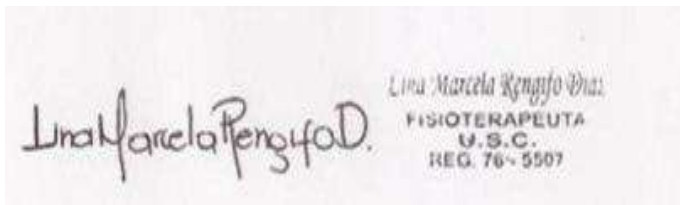 Lina Marcela Rengifo D.
Lina Marcela Rengifo Diaz
FISIOTERAPEUTA
U.S.C.
REG. 76- 5507